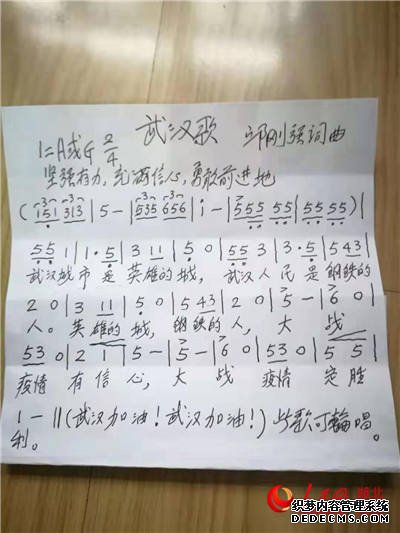 武汉歌 邹刚强词曲
1=A或G 2/4
坚强有力,充满信心,勇敢前进地
(151 313|5-|535 656|i-|555 55|55 55)|
55 1|1·5|3 11|5 0|55 3|3·5|543|
武汉城市是英雄的城,武汉人民是钢铁的
2 0|3 11|5 0|543|2 0|5-|6 0|
人。英雄的城,钢铁的人,大战
53 0|2 1|5-|5-|6 0|53 0|5 5|
疫情有信心,大战疫情定胜
1-‖(武汉加油!武汉加油!)此歌可轮唱。
利。
人民网 湖北
织梦内容管理系统
DEDECMS.COM